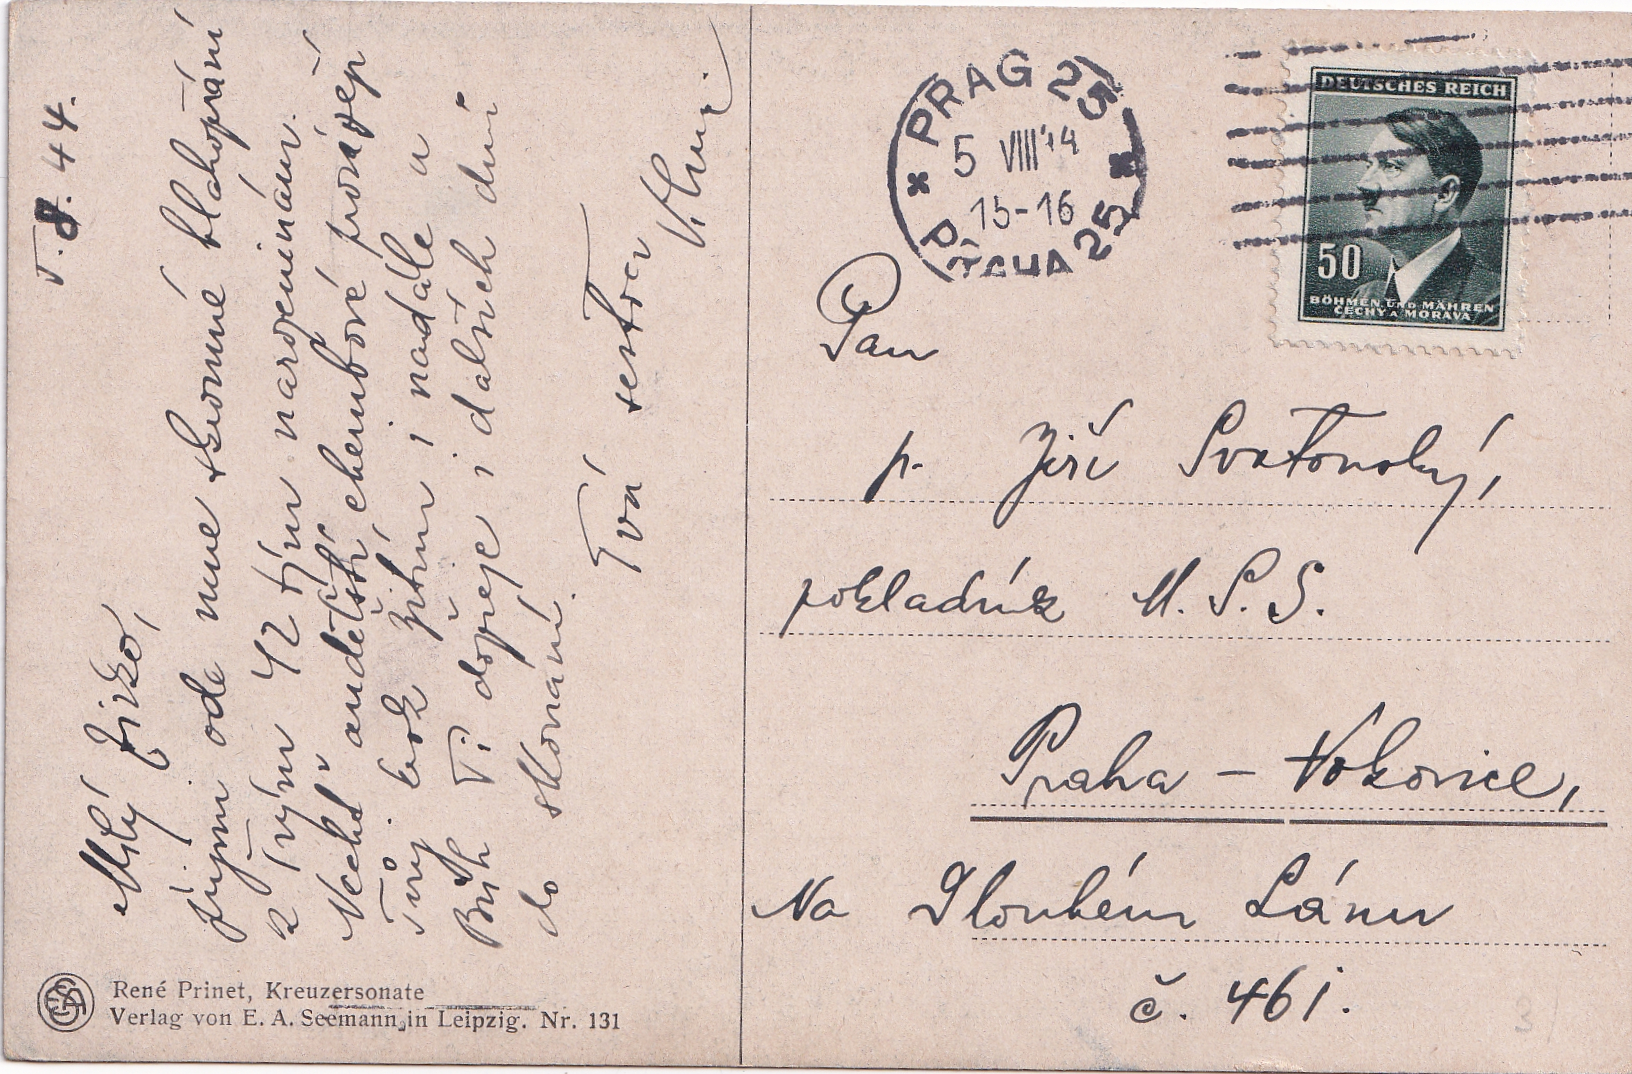 V. 8. 44.
Milý Jirko,
přijmi ode mne skromné blahopřání
k Tvým 42 tým narozeninám.
Nechť andělští cherubové provázejí
Tvůj krok žitím i nadále a
Bůh Ti dopřeje i dalších dní
do skonání.
Tvá sestra
PRAG 25
5 VIII 44
15-16
PRAHA 25
DEUTSCHES REICH
50
BÖHMEN UND MÄHREN
ČECHY A MORAVA
Pan
p. Jiří Svatonský,
pokladník M. S. S.
Praha - Vokovice,
Na Dlouhém Lánu
č. 461.
René Prinet, Kreuzersonate
Verlag von E. A. Seemann in Leipzig. Nr. 131